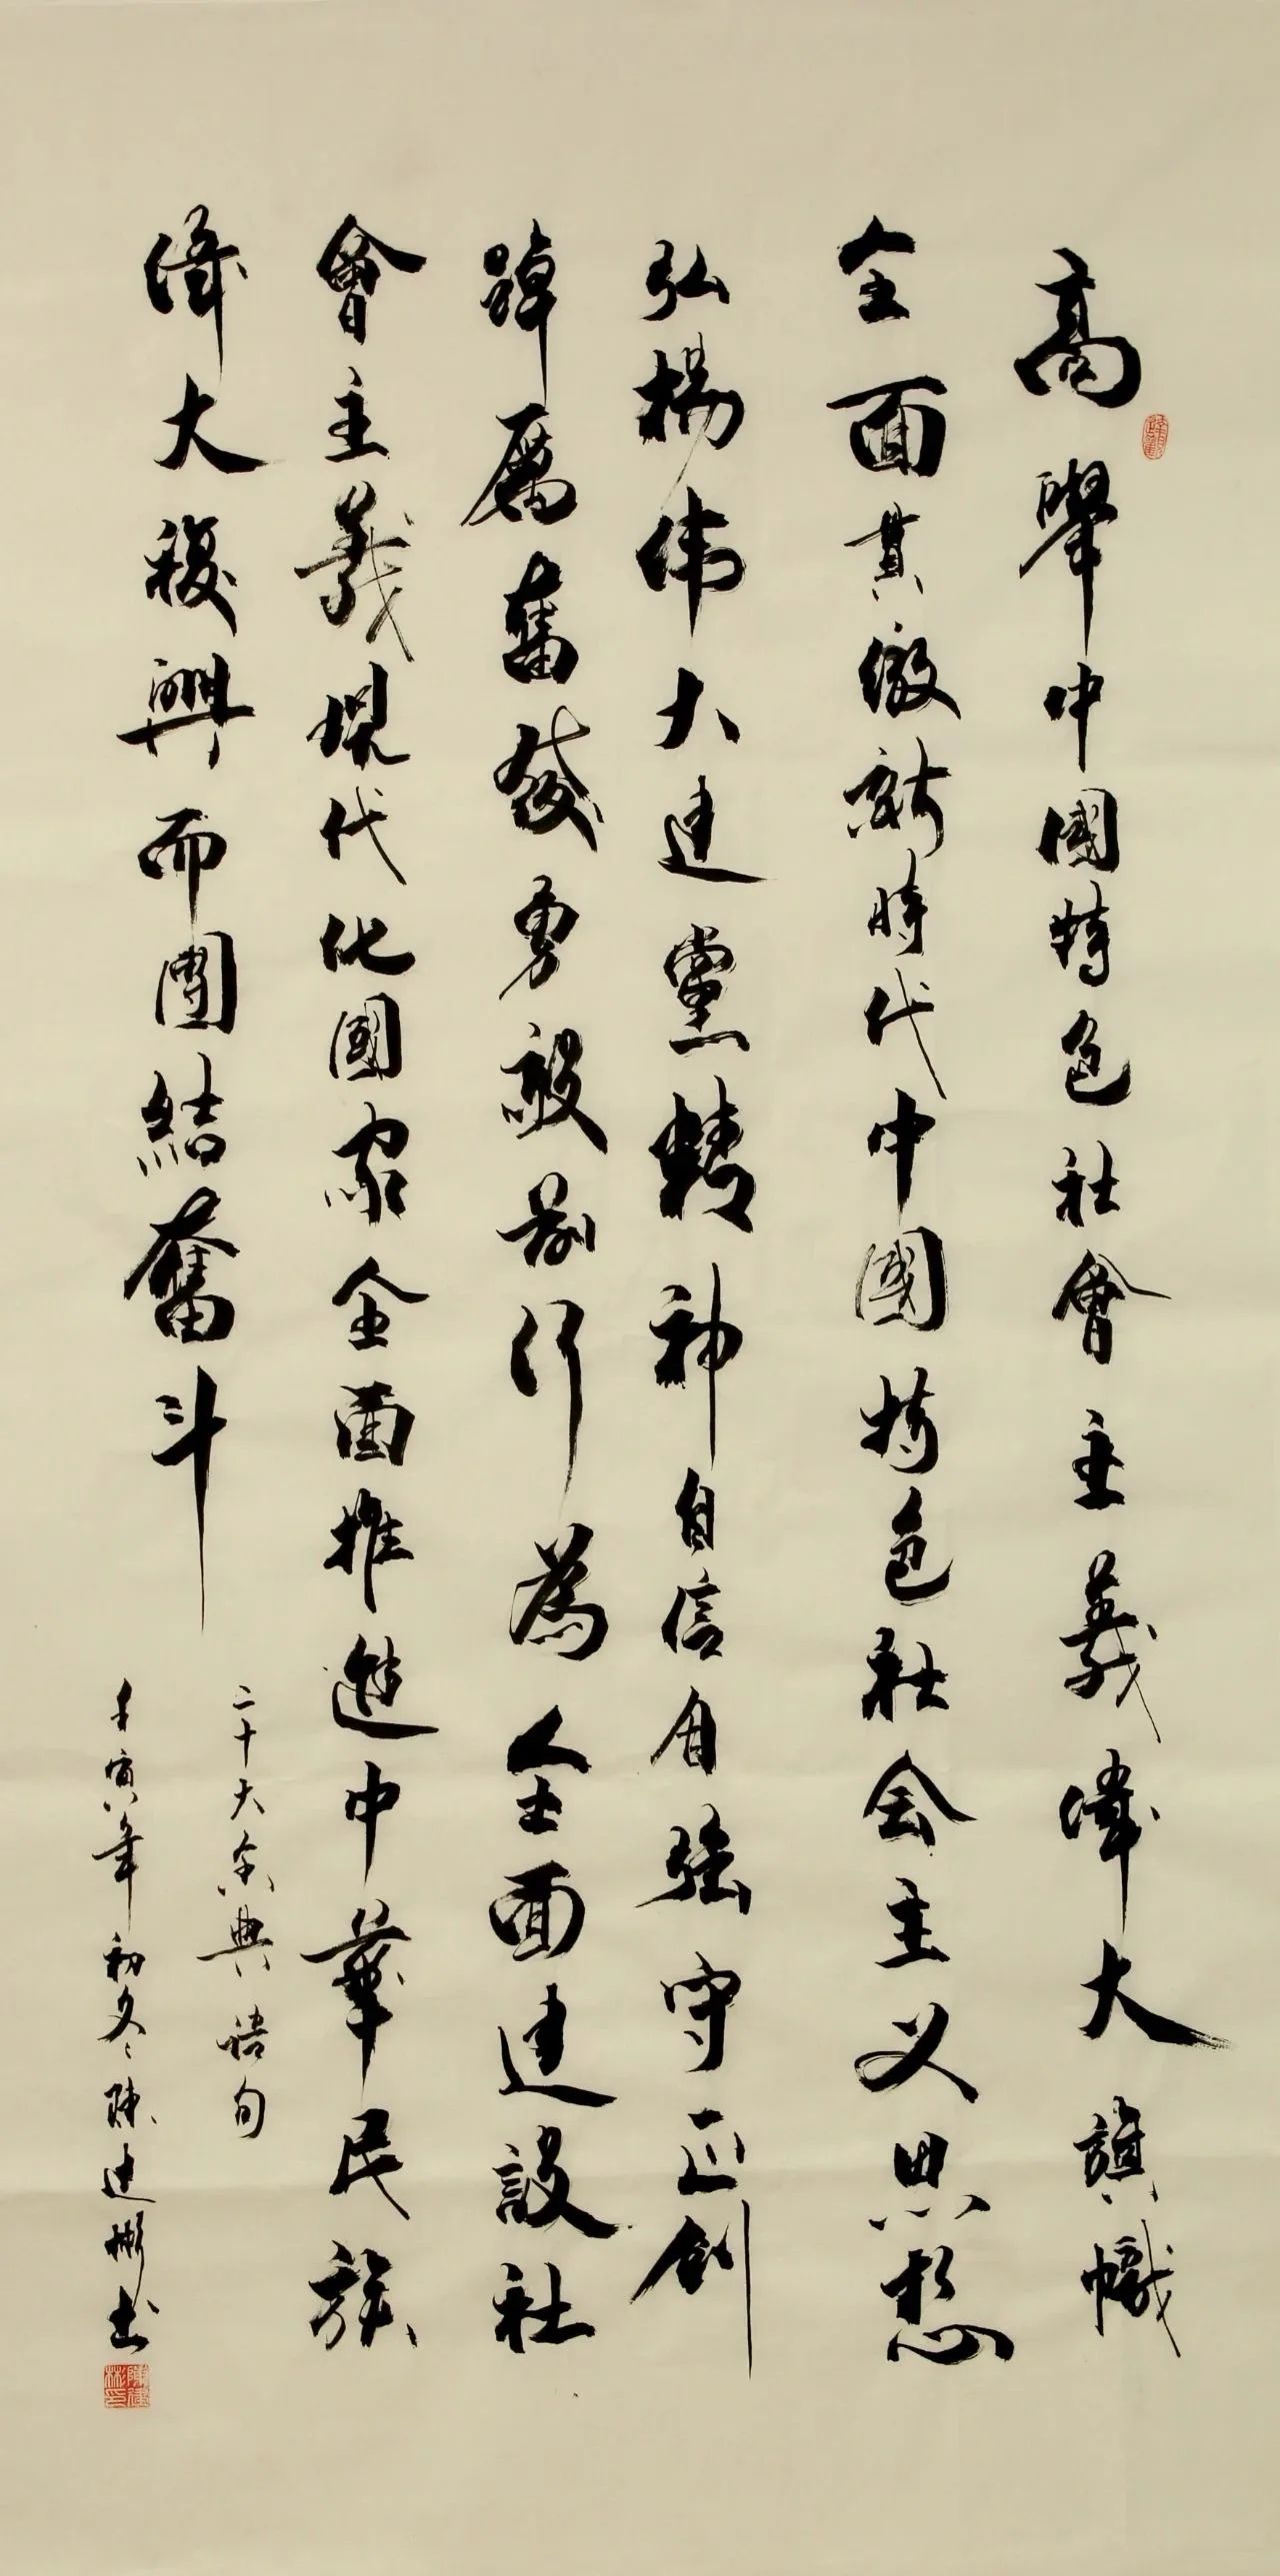 高舉中國特色社會主義偉大旗幟
全面貫徹新時代中國特色社会主义思想
弘揚伟大建黨精神自信自強守正創
踔厲奮發勇毅前行為全面建設社
會主義現代化國家全面推進中華民族
偉大複興而團結奮斗
二十大金典語句
壬寅年初冬陳建彬書
陳建彬印